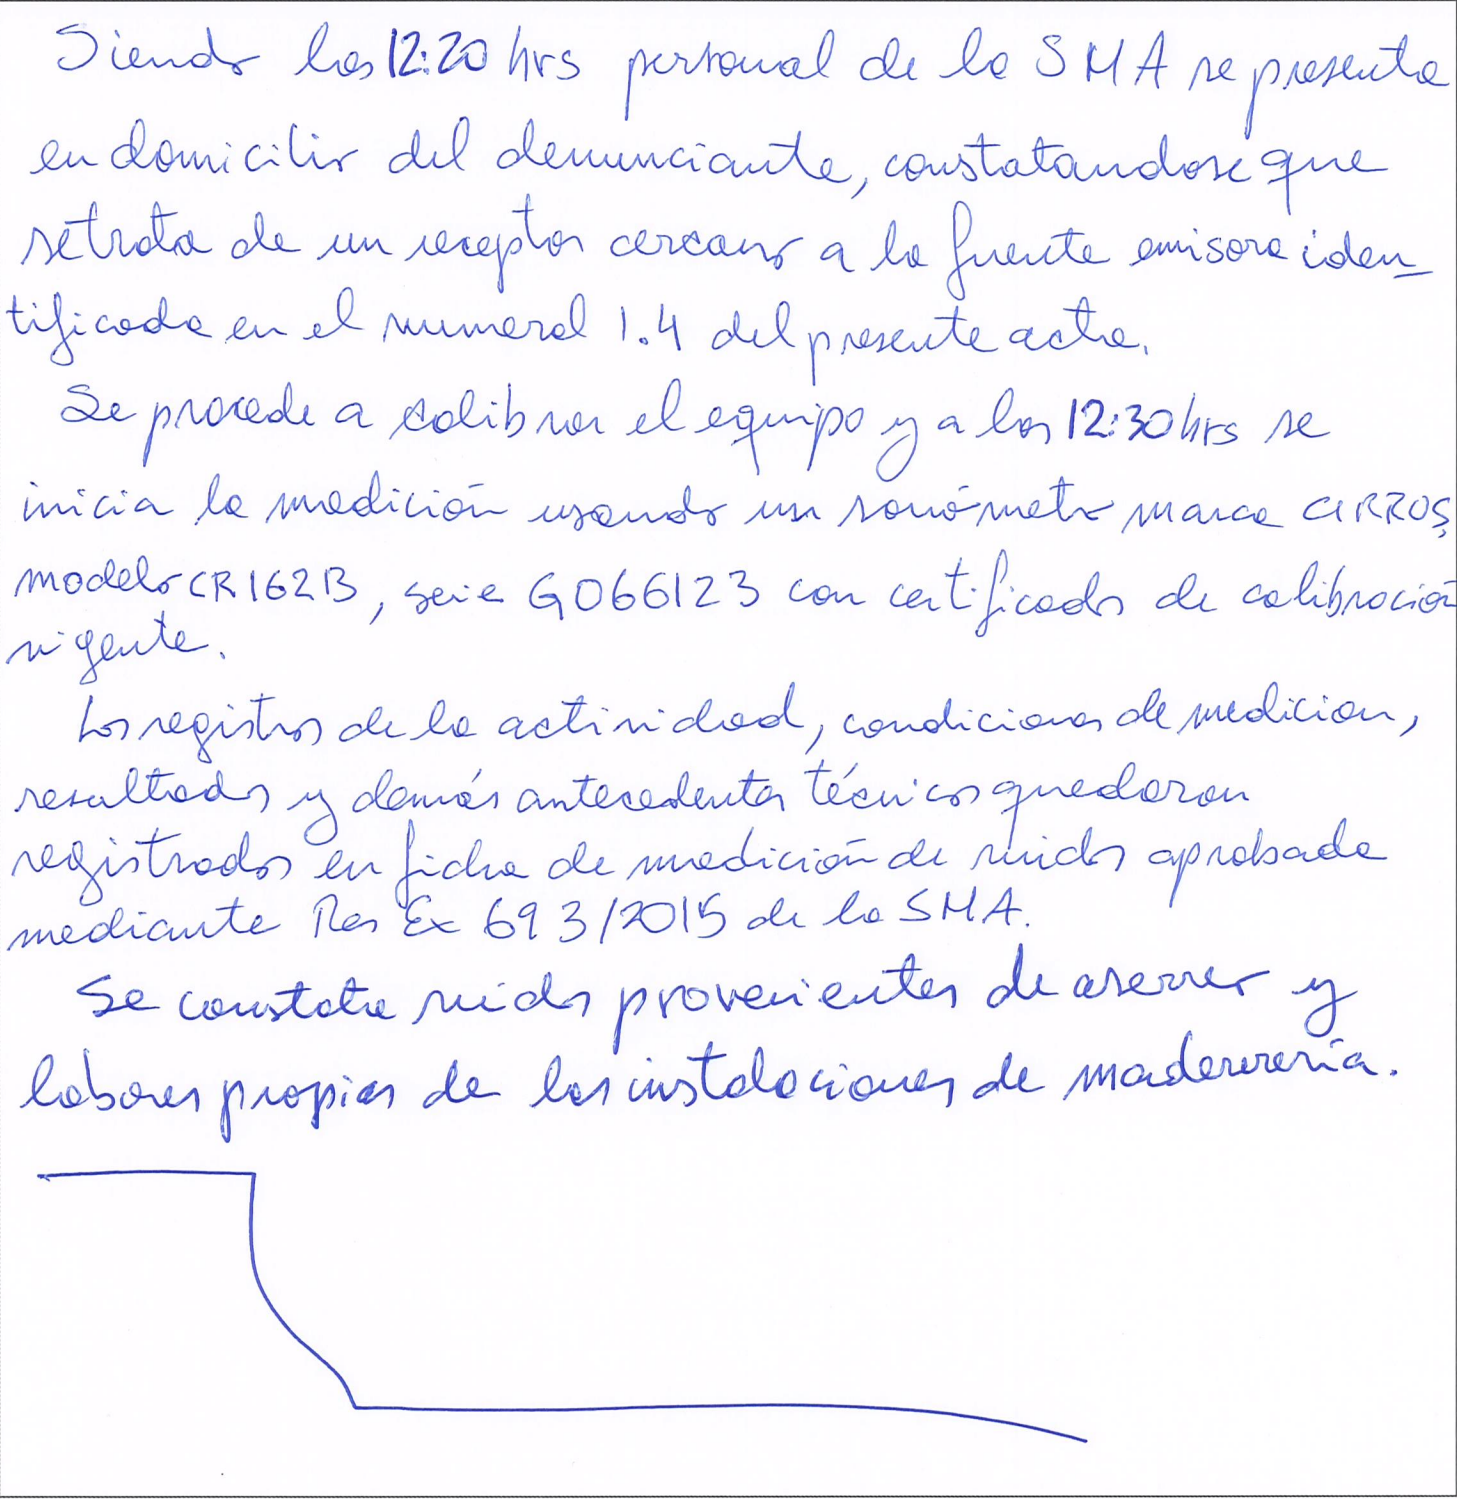 Siendo las 12:20 hrs personal de la SMA se presenta
en domicilio del denunciante, constatandose que
se trata de un receptor cercano a la fuente emisora iden_
tificada en el numeral 1.4 del presente acta.
Se procede a calibrar el equipo y a las 12:30 hrs se
inicia la medición usando un sonómetro marca CIRRUS,
modelo CR162B, serie G066123 con certificado de calibración
vigente.
Los registros de la actividad, condiciones de medicion,
resultados y demás antecedentes técnicos quedaron
registrados en ficha de medición de ruidos aprobada
mediante Res Ex 693/2015 de la SMA.
Se constata ruidos provenientes de aserreo y
labores propias de las instalaciones de madererería.